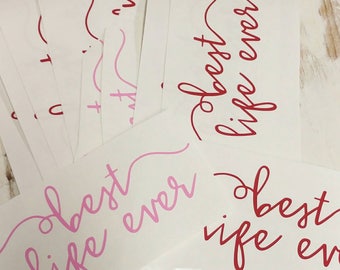 best
life ever
best
life ever
best
life ever